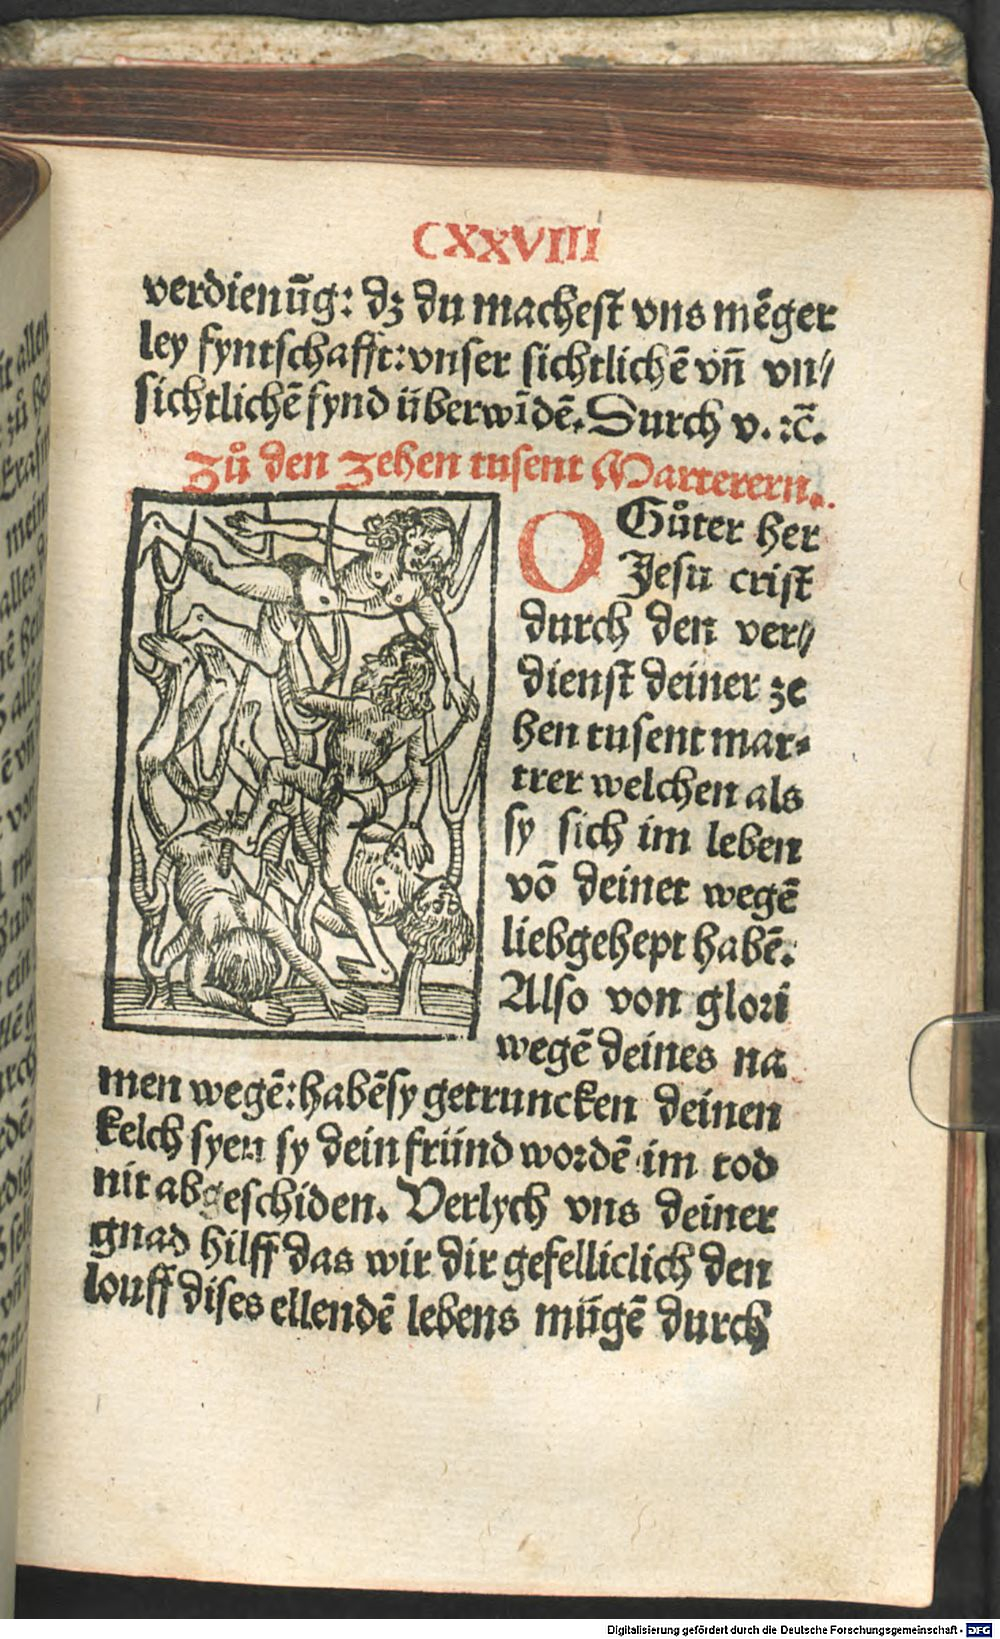 CXXVIII
verdienūg: dz du machest vns mēger
ley fyntschafft: vnser sichtlichē vn̄ vn/
sichtlichē fynd überwīdē. Durch v. ⁊c̄.
Zů den zehen tusent Marterern.
O Gůter her
Jesu crist
durch den ver/
dienst deiner ze
hen tusent mar-
trer welchen als
sy sich im leben
vō deinet wegē
liebgehept habē.
Also von glori
wegē deines na
men wegē: habēsy getruncken deinen
kelch syen sy dein fründ wordē im tod
nit abgeschiden. Verlych vns deiner
gnad hilff das wir dir gefelliclich den
louff dises ellendē lebens mügē durch
Digitalisierung gefördert durch die Deutsche Forschungsgemeinschaft - DFG